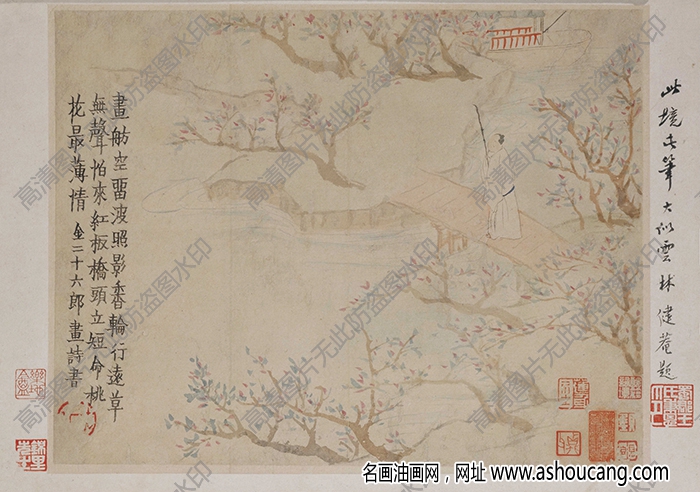 此境此筆大似雲林 健菴題
畫舫空畱波照影香輪行遠草
無聲怕來紅板橋頭立短命桃
花最薄情 金二十六郎畫詩書
高清图片无此防盗图水印
名画油画网，网址 www.ashoucang.com